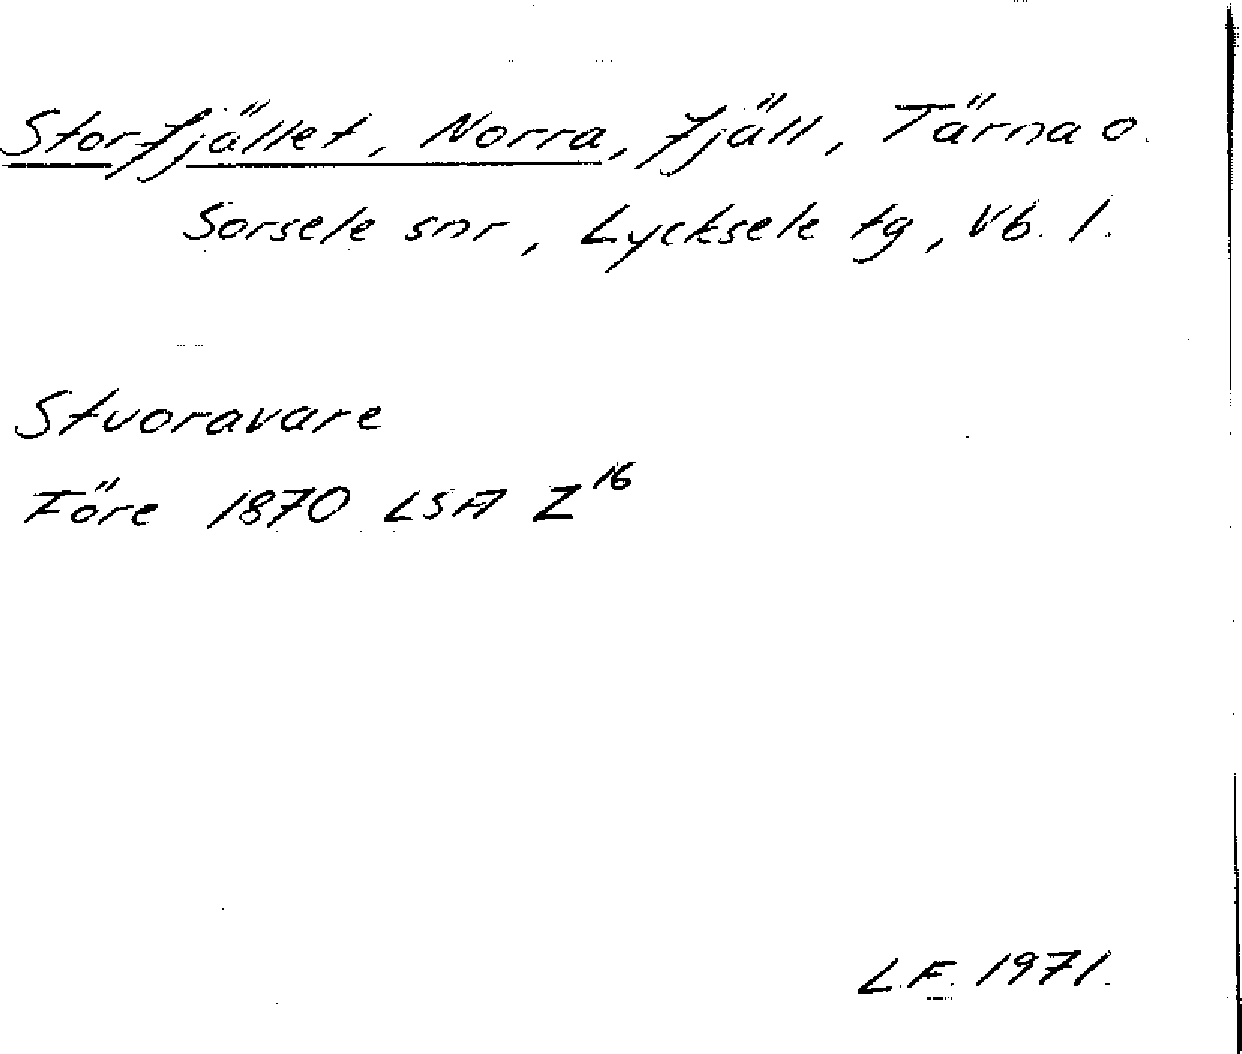 Storfjället, Norra, fjäll, Tärna o.
Sorsele snr, Lycksele tg, Vb. l.
Stuoravare
Före 1870 LSA Z16
L.F. 1971.